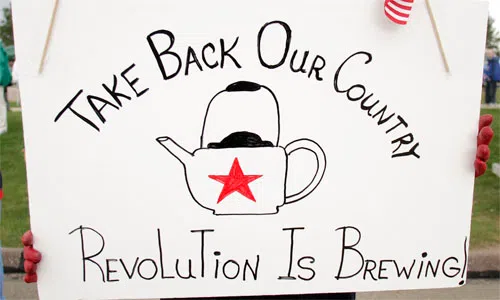 Take Back Our Country
Revolution Is Brewing!